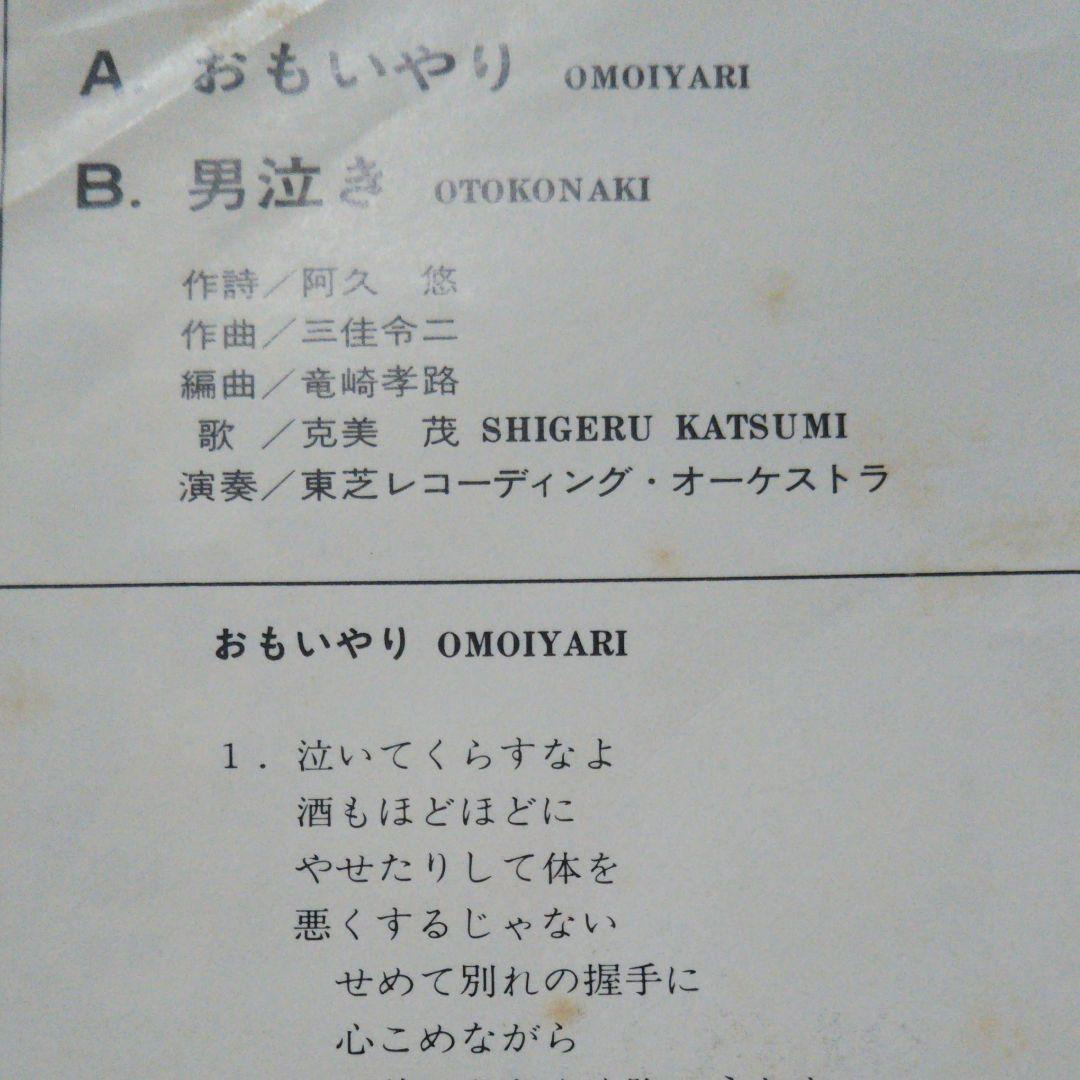 A. おもいやり OMOIYARI
B. 男泣き OTOKONAKI
作詩／阿久 悠
作曲／三佳令二
編曲／竜崎孝路
歌／克美 茂 SHIGERU KATSUMI
演奏／東芝レコーディング・オーケストラ
おもいやり OMOIYARI
1. 泣いてくらすなよ
酒もほどほどに
やせたりして体を
悪くするじゃない
せめて別れの握手に
心こめながら